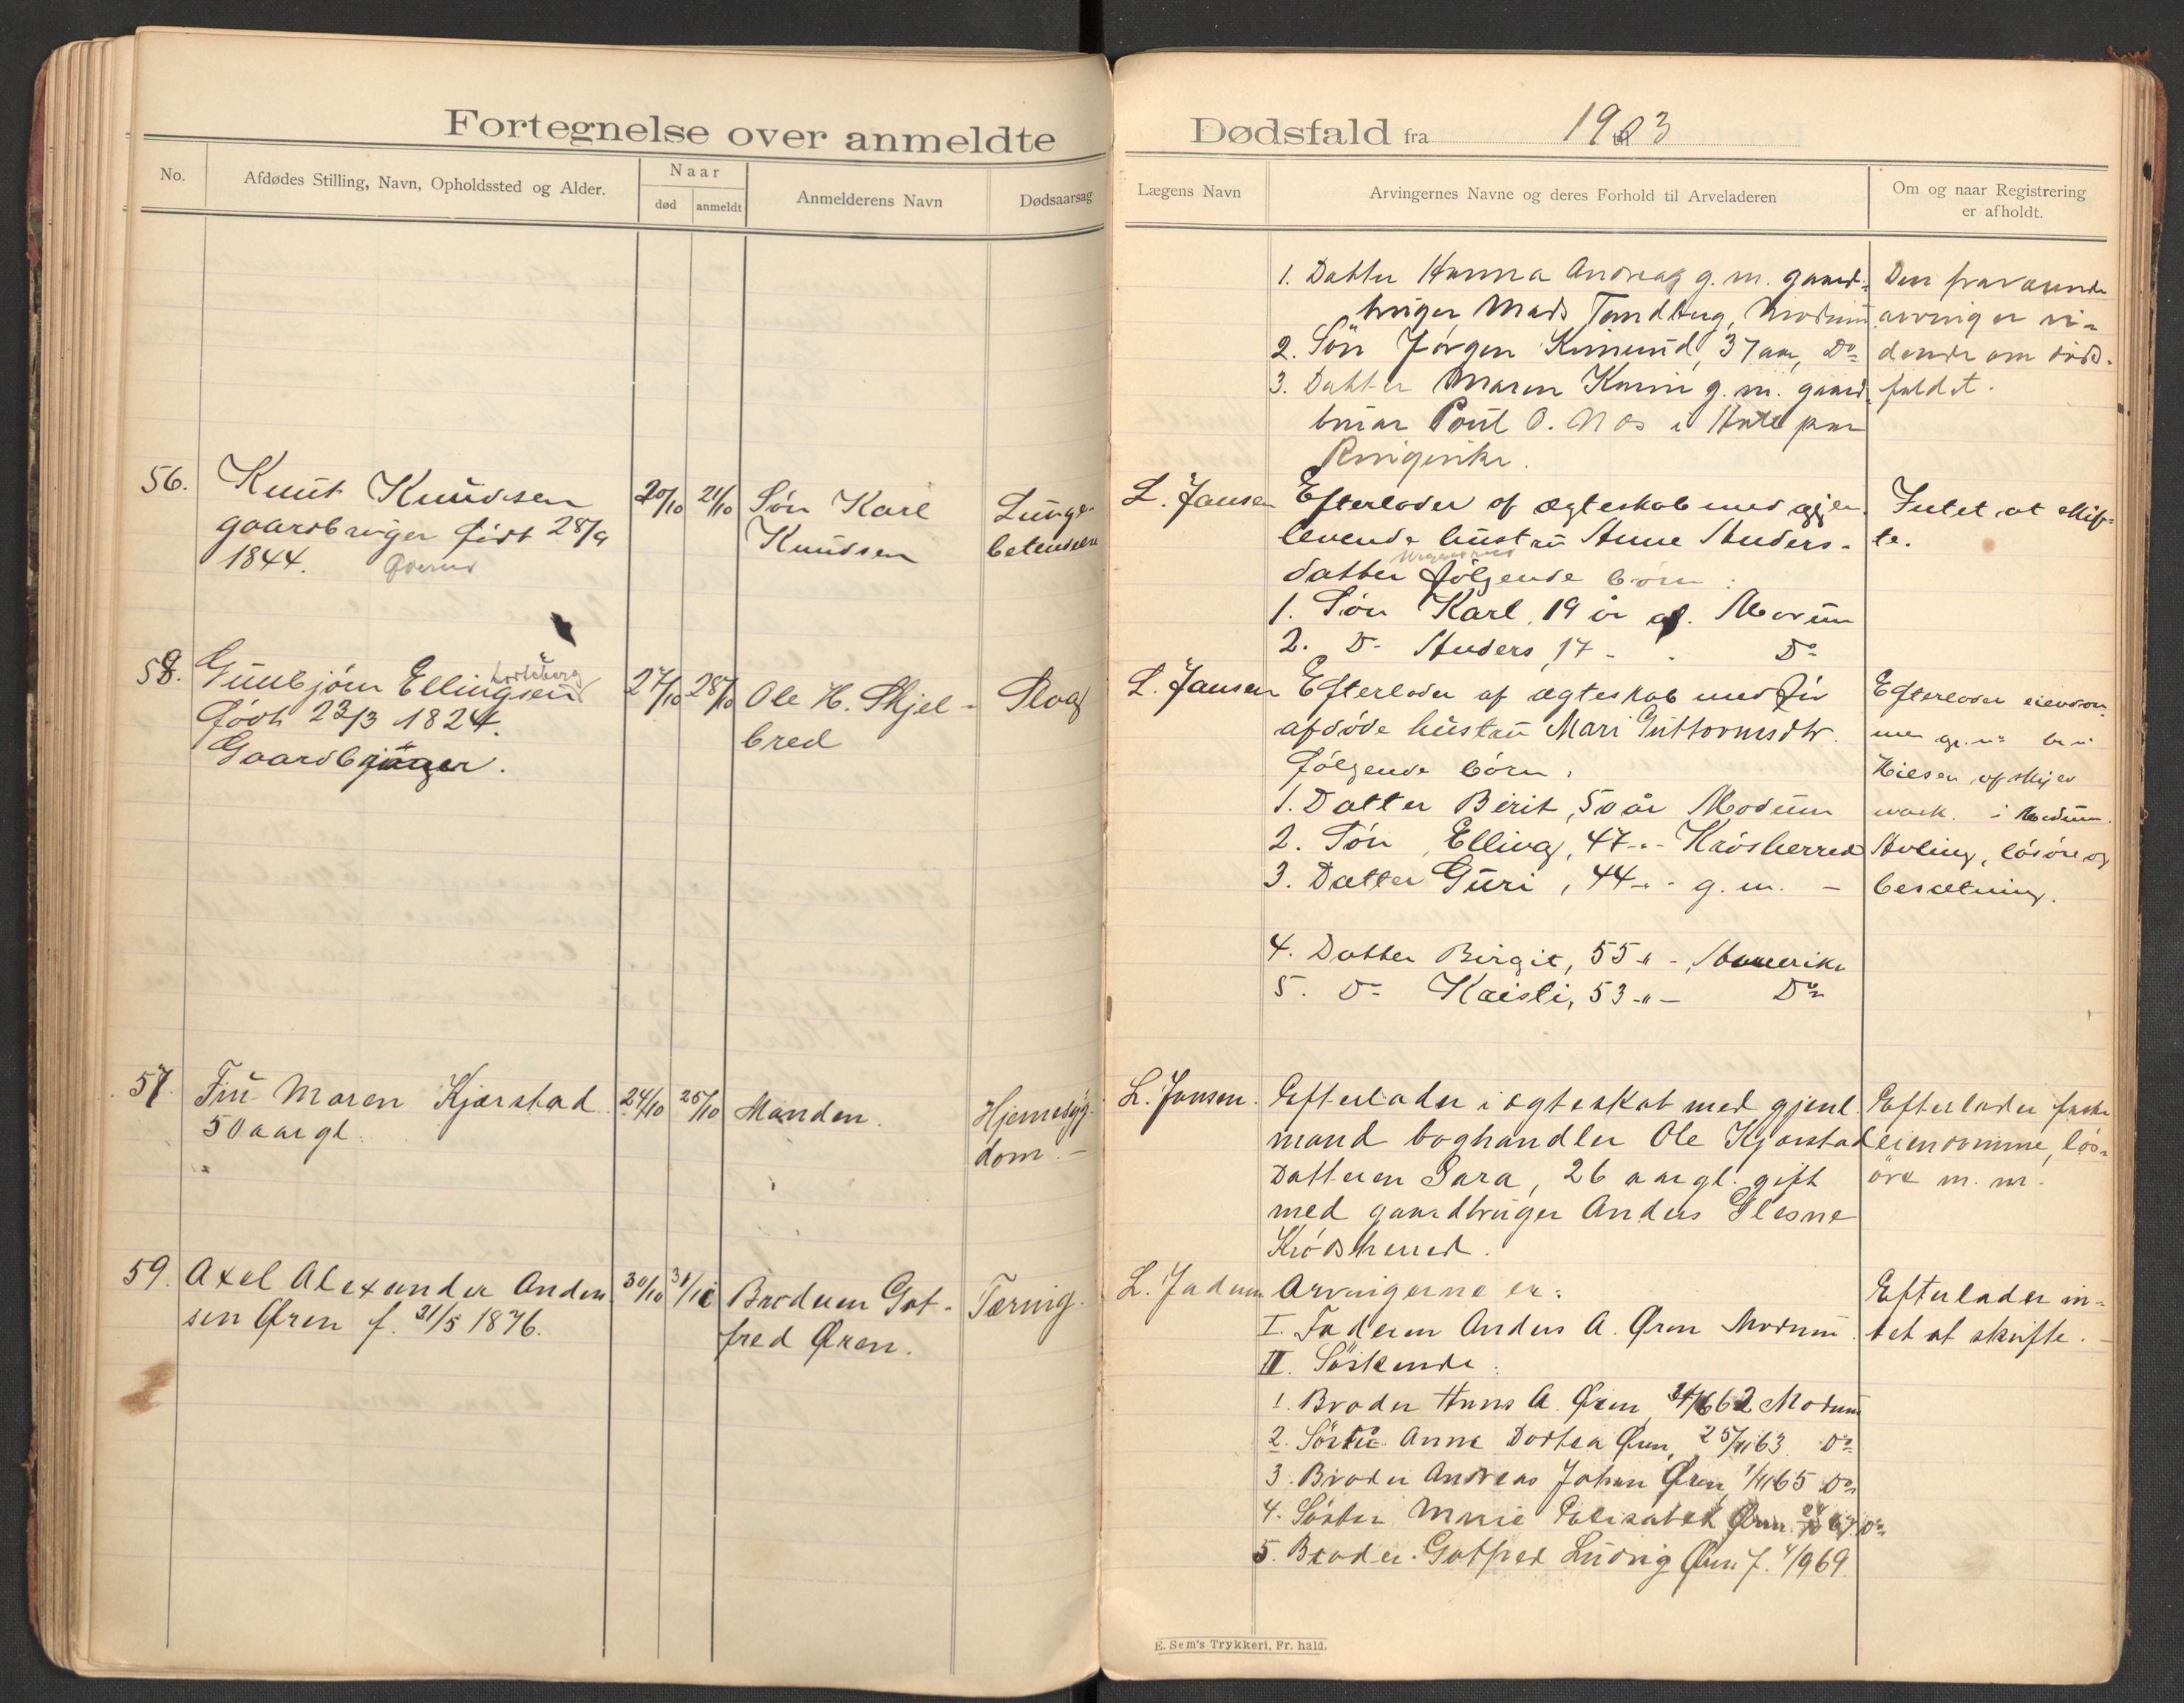 Fortegnelse over anmeldte
No.
Afdødes Stilling, Navn, Opholdssted og Alder.
Naar
død
anmeldt
Anmelderens Navn
Dødsaarsag
56.
Knut Knudsen
gaardbruger født 28/9
1844.
20/10
21/10
Søn Karl
Knudsen
Lunge-
betendelse
58.
Gunbjørn Ellingsen
født 23/3 1824.
Gaardbruger.
27/10
28/10
Ole H. Skjel-
bred
Slag
57.
Fru Maren Kjærstad
50 aar gl.
24/10
25/10
Manden.
Hjernesyg-
dom. -
59.
Axel Alexander Ander-
sen Øren f. 21/5 1876.
30/10
31/10
Broderen Got-
fred Øren.
Tæring.
Dødsfald fra 1903
Lægens Navn
Arvingernes Navne og deres Forhold til Arveladeren
Om og naar Registrering
er afholdt.
1. Datter Hanna Andrea g. m. gaard-
bruger Mads Tandberg, Modum
2. Søn Jørgen 37 aar, Do
3. Datter Maren Karin g. m. gaard-
O. i
Ringerike.
om døds-
faldet.
L. Jansen
Efterlader af ægteskab med gjen-
levende hustru Anne Anders-
datter følgende børn:
1. Søn Karl, 19 år Modum
2. Do Anders 17 - - Do
Intet at skif-
te.
L. Jansen
Efterlader af ægteskab med før
afdøde hustru Mari Guttormsdtr.
følgende børn:
1. Datter Berit, 50 år Modum
2. Søn Elling, 47 -"- Krødsherred
3. Datter Guri, 44 -"- g. m. -
4. Datter Birgit, 55 -"-, Amerika
5. Do Kristi, 53 -"- Do
Efterlader eiendom-
i Modum.
Avling, løsøre og
besætning.
L. Jansen.
Efterlader i ægteskab med gjenl.
mand boghandler Ole Kjærstad
Datteren Sara, 26 aar gl. gift
med gaardbruger Anders Glesne
Krødsherred.
Efterlader faste
eiendomme, løs-
øre m. m.
L. Jansen
Arvingerne er:
I. Faderen Anders A. Øren Modum.
II. Søskende:
1. Broder Hans A. Øren, 62 Modum
2. Søster Anne Dorthea Øren, 25/11 63. Do
3. Broder Andreas Johan Øren, 65 Do
4. Søster Marie Elisabet Øren 67. Do
5. Broder Gotfred Ludvig Øren f. 4/9 69
Efterlader in-
tet at skifte. -
E. Sem's Trykkeri, Fr. hald.